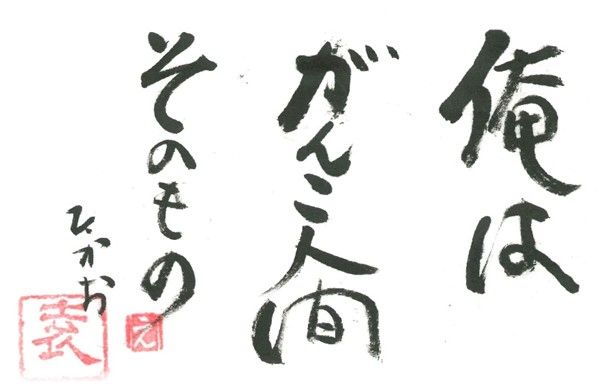 俺は
がんこ人間
そのもの
ひかお
え